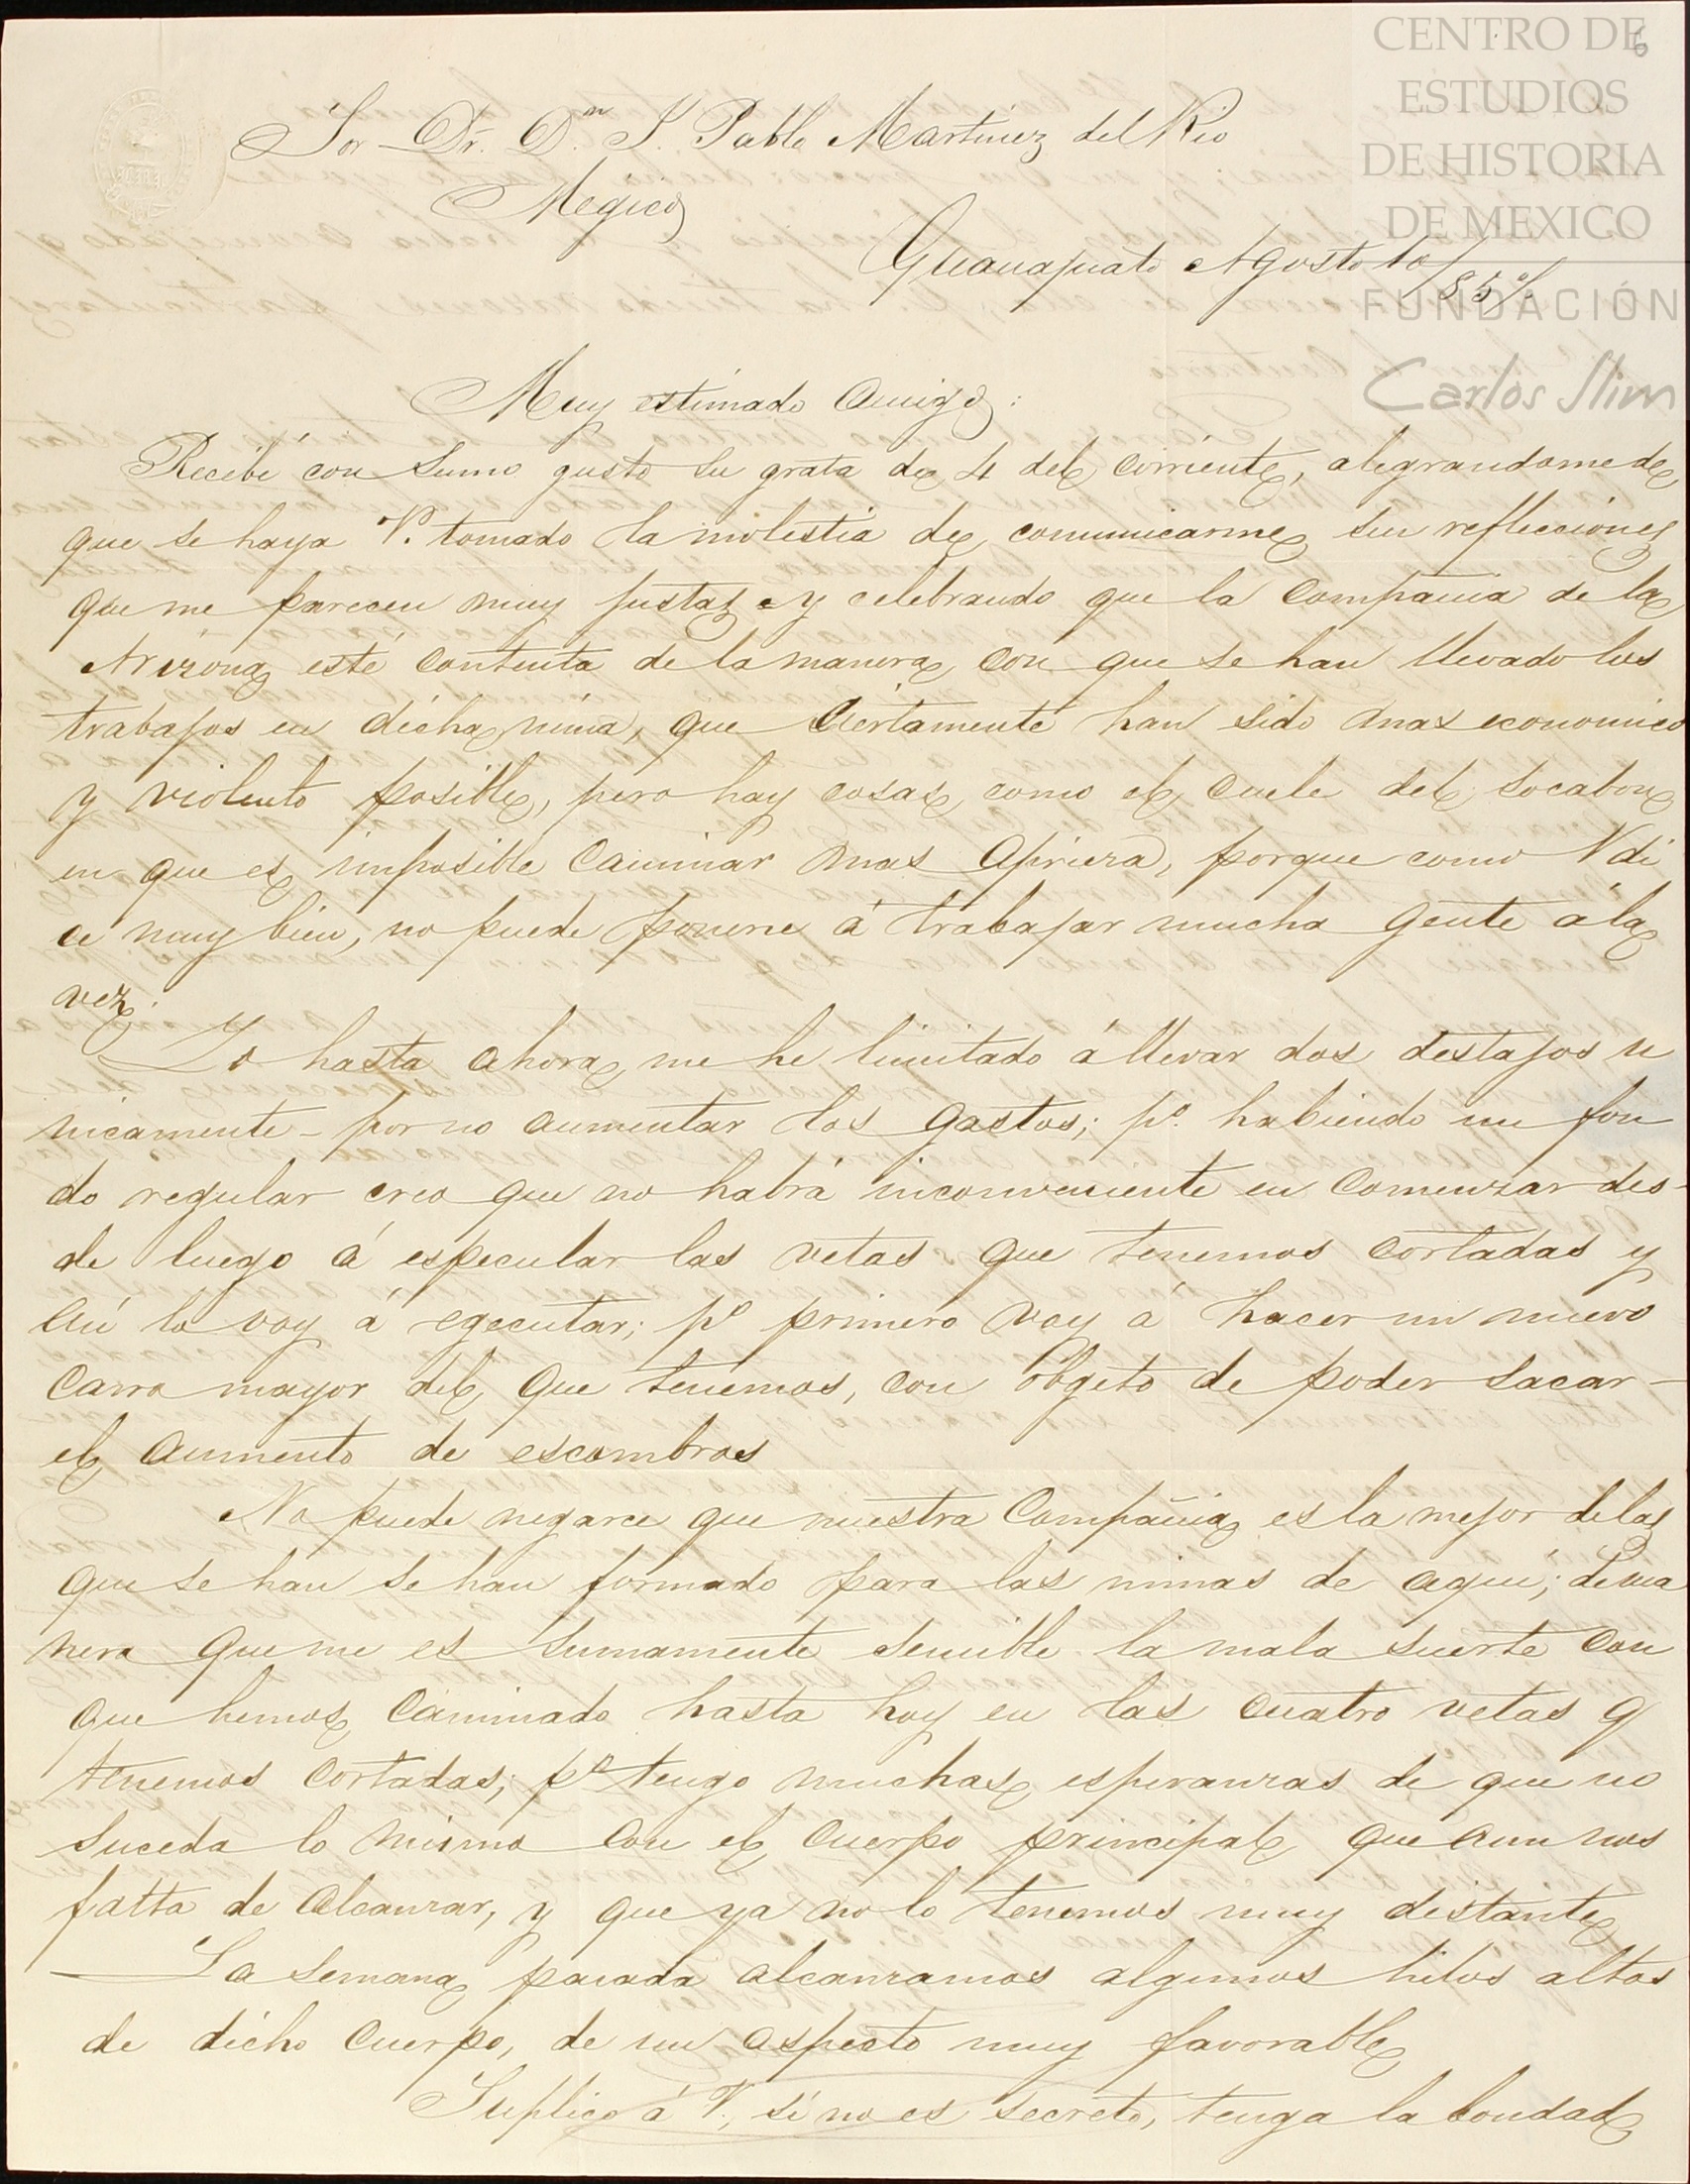 CENTRO DE
ESTUDIOS
DE HISTORIA
DE MEXICO
FUNDACIÓN
Carlos Slim
6
Sor Dr. Dn. J. Pablo Martinez del Rio
Megico
Guanajuato Agosto 10/85
Muy estimado Amigo:
Recibí con sumo gusto su grata de 4 del corriente, alegrandome de
que se haya V. tomado la molestia de comunicarme sus reflecciones
que me parecen muy justas y celebrando que la Compañia de la
Arizona esté contenta de la manera con que se han llevado los
trabajos en dicha mina, que ciertamente han sido mas economico
y violento posible, pero hay cosas como el cuele del socabon
en que es imposible caminar mas apriera, porque como V di
ce muy bien, no puede ponerse á trabajar mucha gente á la
vez.
Yo hasta ahora me he limitado á llevar dos destajos u
nicamente por no aumentar los gastos; po. habiendo un fon
do regular creo que no habrá inconveniente en comenzar des-
de luego á especular las vetas que tenemos cortadas y
así lo voy á egecutar; po primero voy á hacer un nuevo
carro mayor del que tenemos, con obgeto de poder sacar
el aumento de escombros
No puede negarce que nuestra Compañia es la mejor de las
que se han se han formado para las minas de aqui; de ma
nera que me es sumamente sensible la mala suerte con
que hemos caminado hasta hoy en las cuatro vetas q
tenemos cortadas; po tengo muchas esperanzas de que no
suceda lo mismo con el cuerpo principal que aun nos
falta de alcanzar, y que ya no lo tenemos muy distante
La semana pasada alcanzamos algunos hilos altos
de dicho cuerpo, de un aspecto muy favorable
Suplico á V., si no es secreto, tenga la bondad